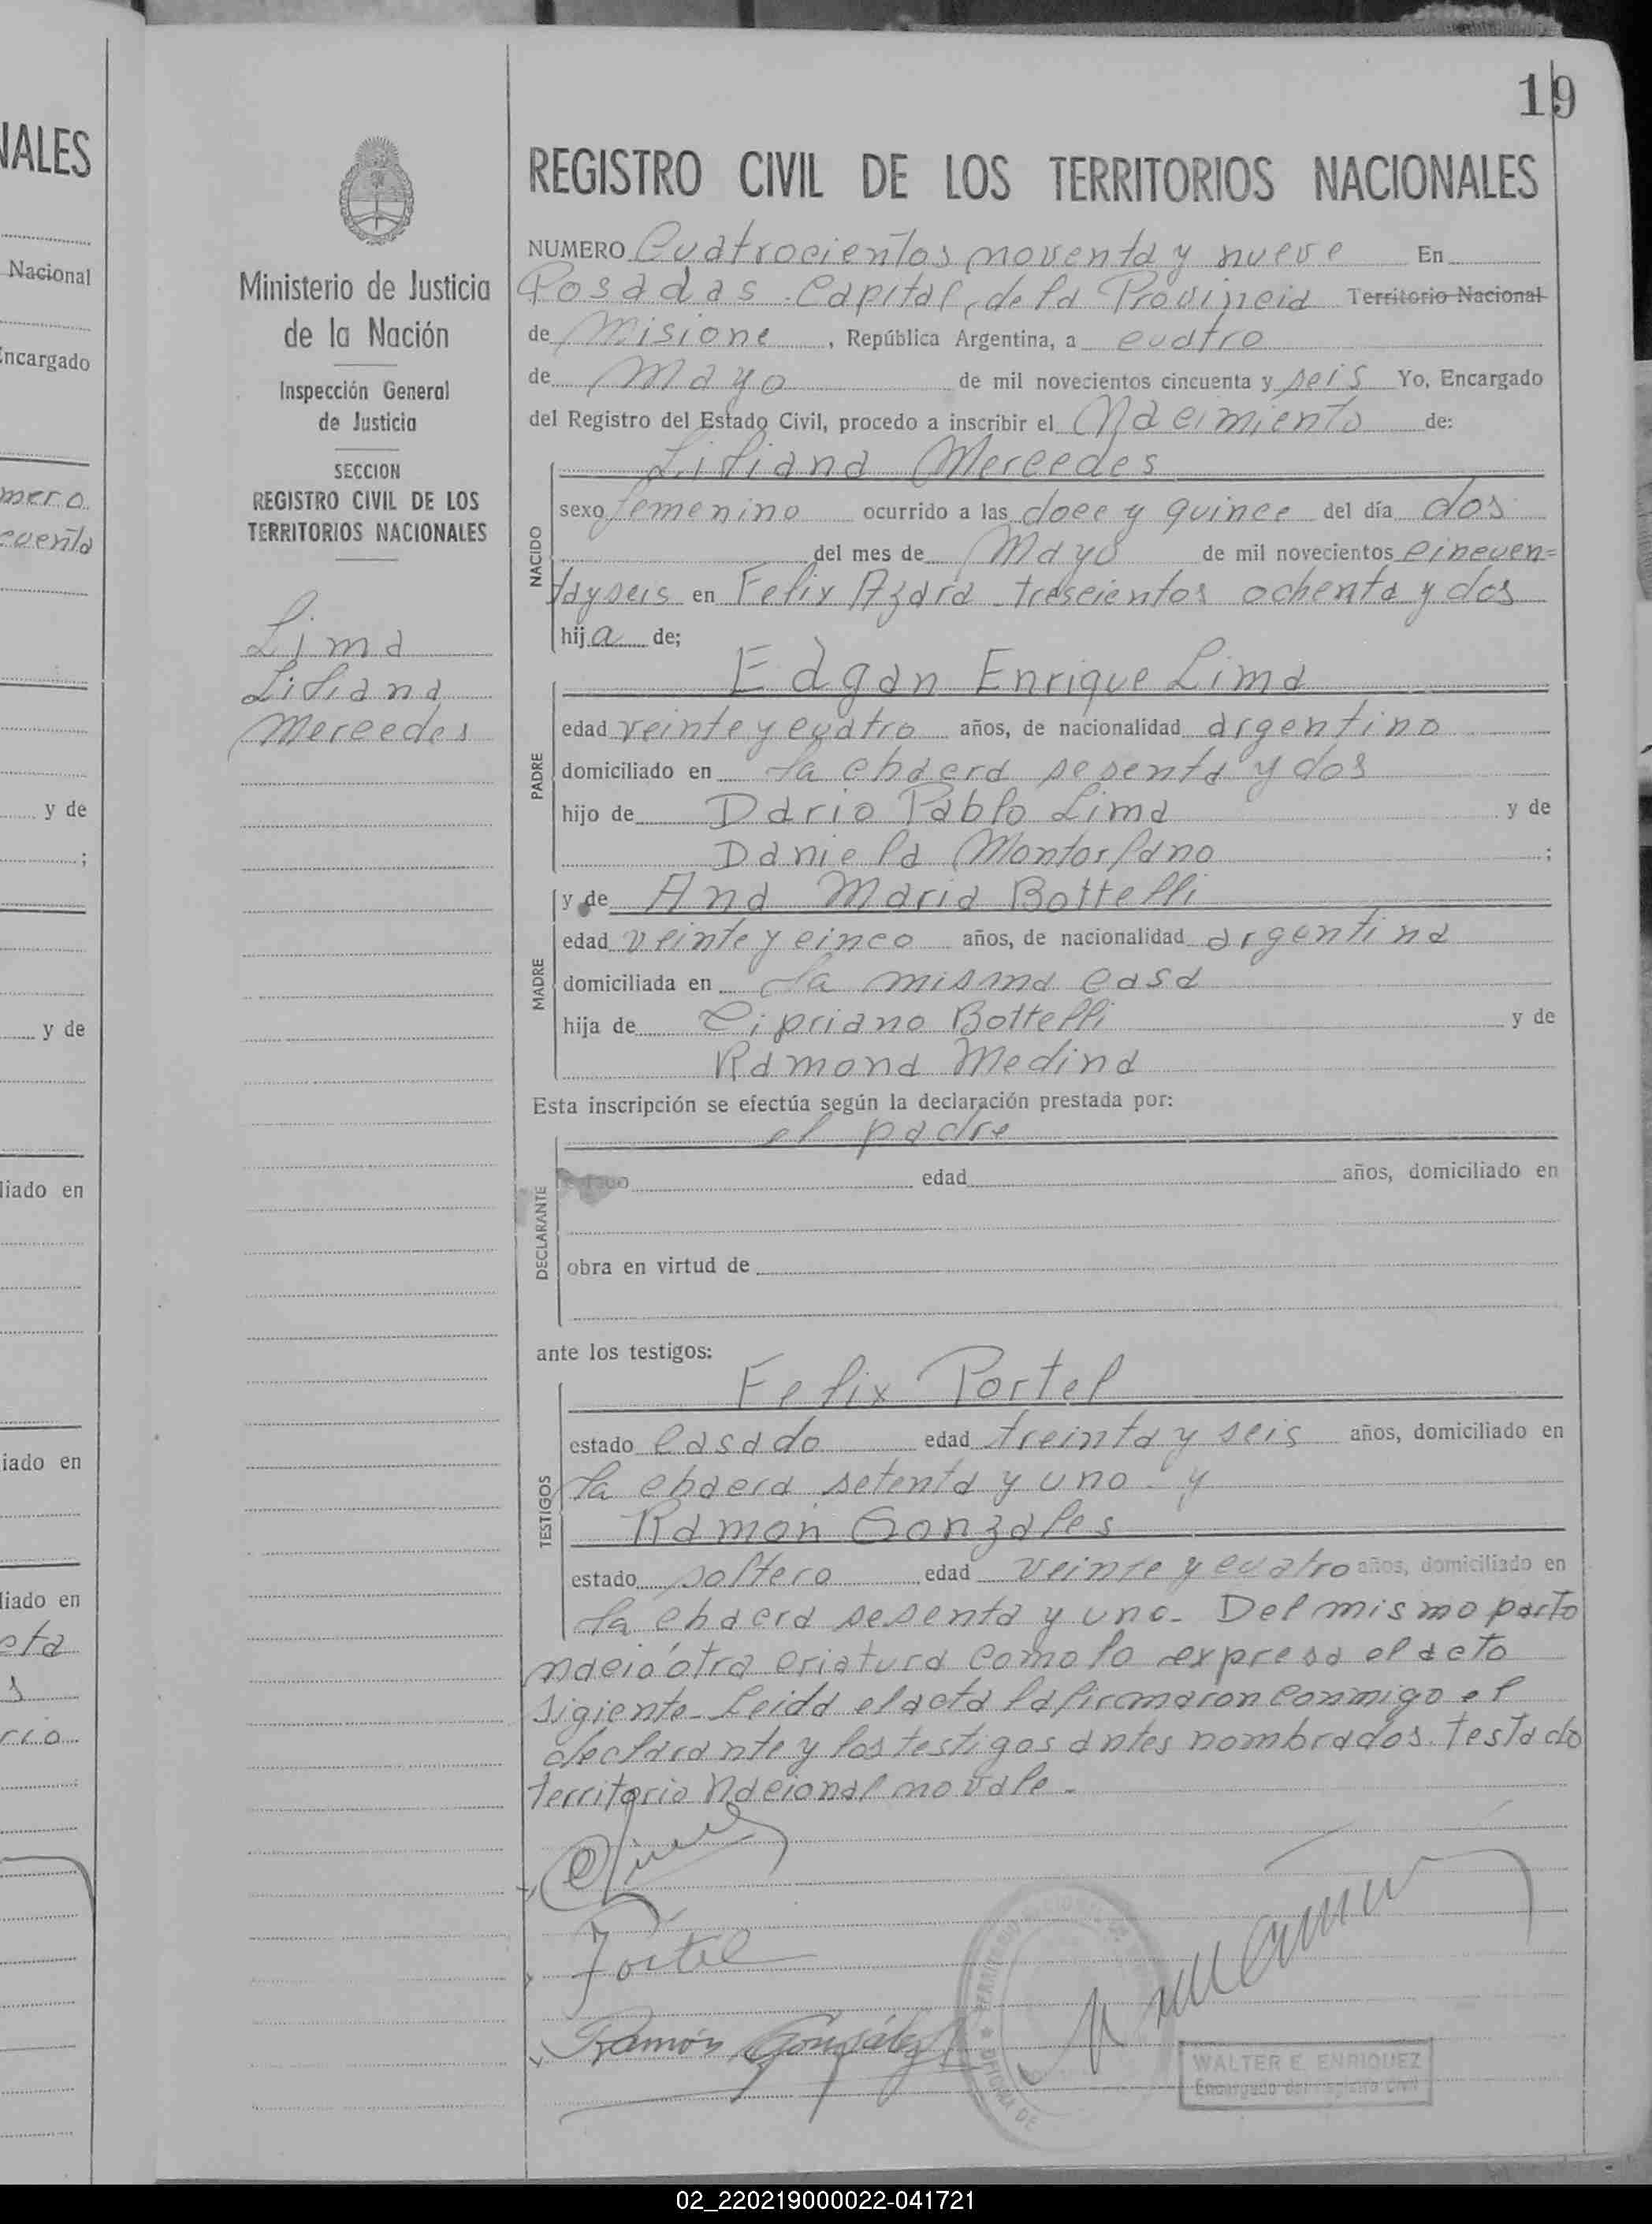 19
NALES
Nacional
Encargado
mero
cuenta
y de
;
y de
liado en
iado en
liado en
eta
s
rio
Ministerio de Justicia
de la Nación
Inspección General
de Justicia
SECCION
REGISTRO CIVIL DE LOS
TERRITORIOS NACIONALES
Lima
Liliana
Mercedes
REGISTRO CIVIL DE LOS TERRITORIOS NACIONALES
NUMERO Cuatrocientos noventa y nueve En
Posadas Capital de la Provincia Territorio Nacional
de Misione , República Argentina, a cuatro
de Mayo de mil novecientos cincuenta y seis Yo, Encargado
del Registro del Estado Civil, procedo a inscribir el Nacimiento de:
Liliana Mercedes
NACIDO
sexo femenino ocurrido a las doce y quince del día dos
del mes de Mayo de mil novecientos cincuen=
tayseis en Felix Azara trescientos ochenta y dos
hija de;
Edgan Enrique Lima
PADRE
edad veinte y cuatro años, de nacionalidad argentino
domiciliado en la chacra sesenta y dos
hijo de Dario Pablo Lima y de
Daniela Montorfano ;
y de Ana Maria Bottelli
MADRE
edad veinte y cinco años, de nacionalidad argentina
domiciliada en la misma casa
hija de Cipriano Bottelli y de
Ramona Medina
Esta inscripción se efectúa según la declaración prestada por:
el padre
DECLARANTE
edad años, domiciliado en
obra en virtud de
ante los testigos:
Felix Portel
TESTIGOS
estado casado edad treinta y seis años, domiciliado en
la chacra setenta y uno - y
Ramón Gonzales
estado soltero edad veinte y cuatro años, domiciliado en
la chacra sesenta y uno- Del mismo parto
nació otra criatura como lo expresa el acto
sigiente- Leida el acta la firmaron conmigo el
declarante y los testigos antes nombrados. Testado
territorio Nacional no vale -
Ramón González
OFICINA DE
WALTER E. ENRIQUEZ
Encargado del Registro Civil
02_220219000022-041721